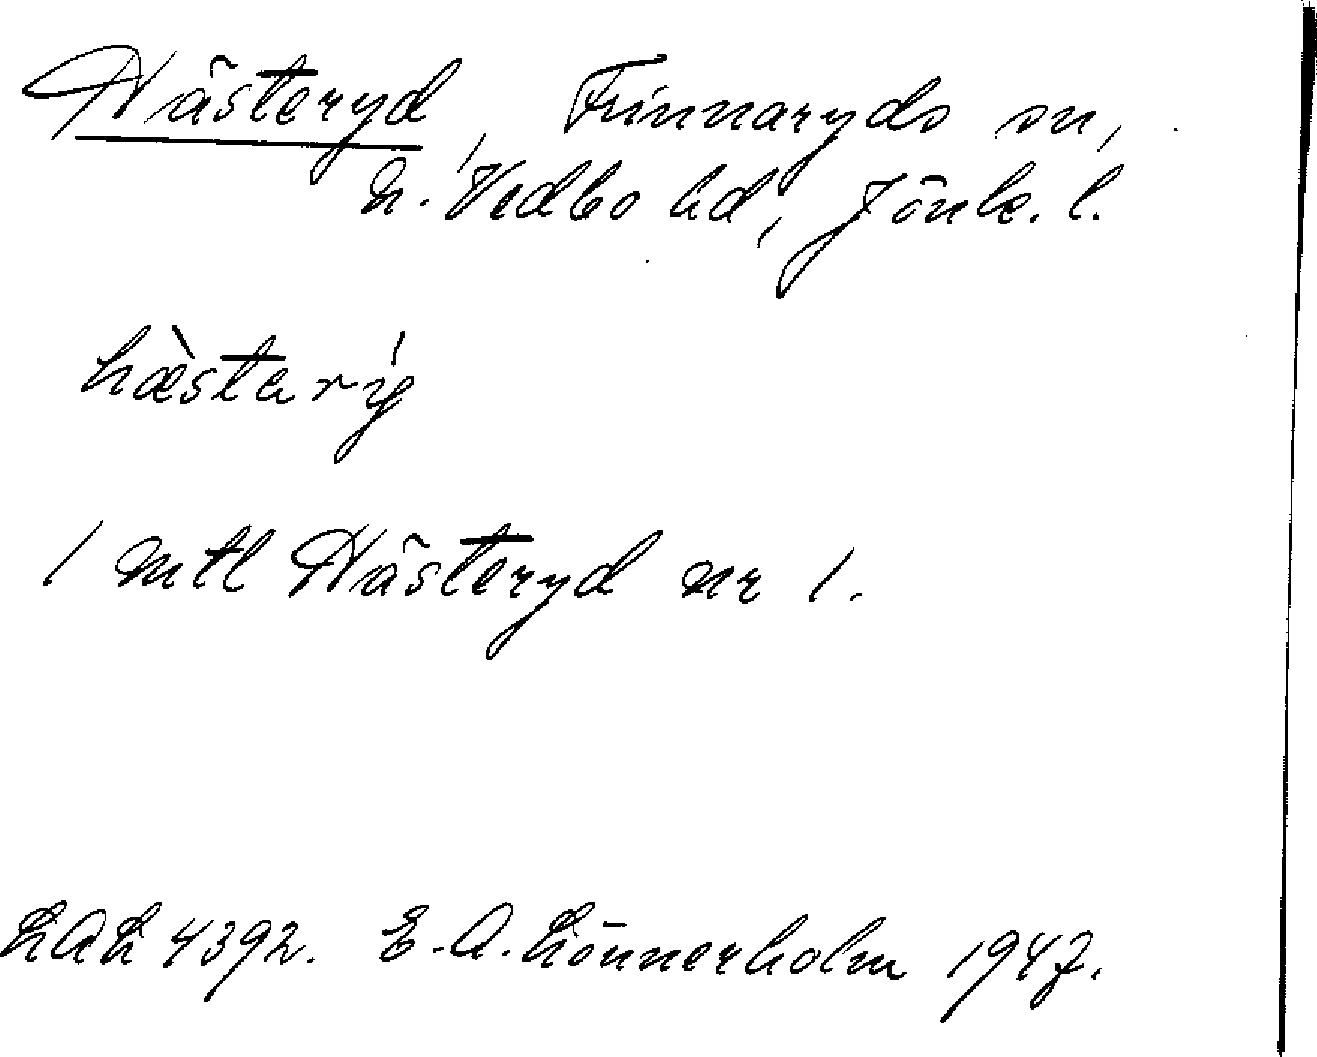 Hästeryd, Frinnaryds sn,
N. Vedbo hd, Jönk. l.
hæ̀starý
1 mtl Hästeryd nr 1.
LAL 4392. E. A. Lönnerholm 1947.